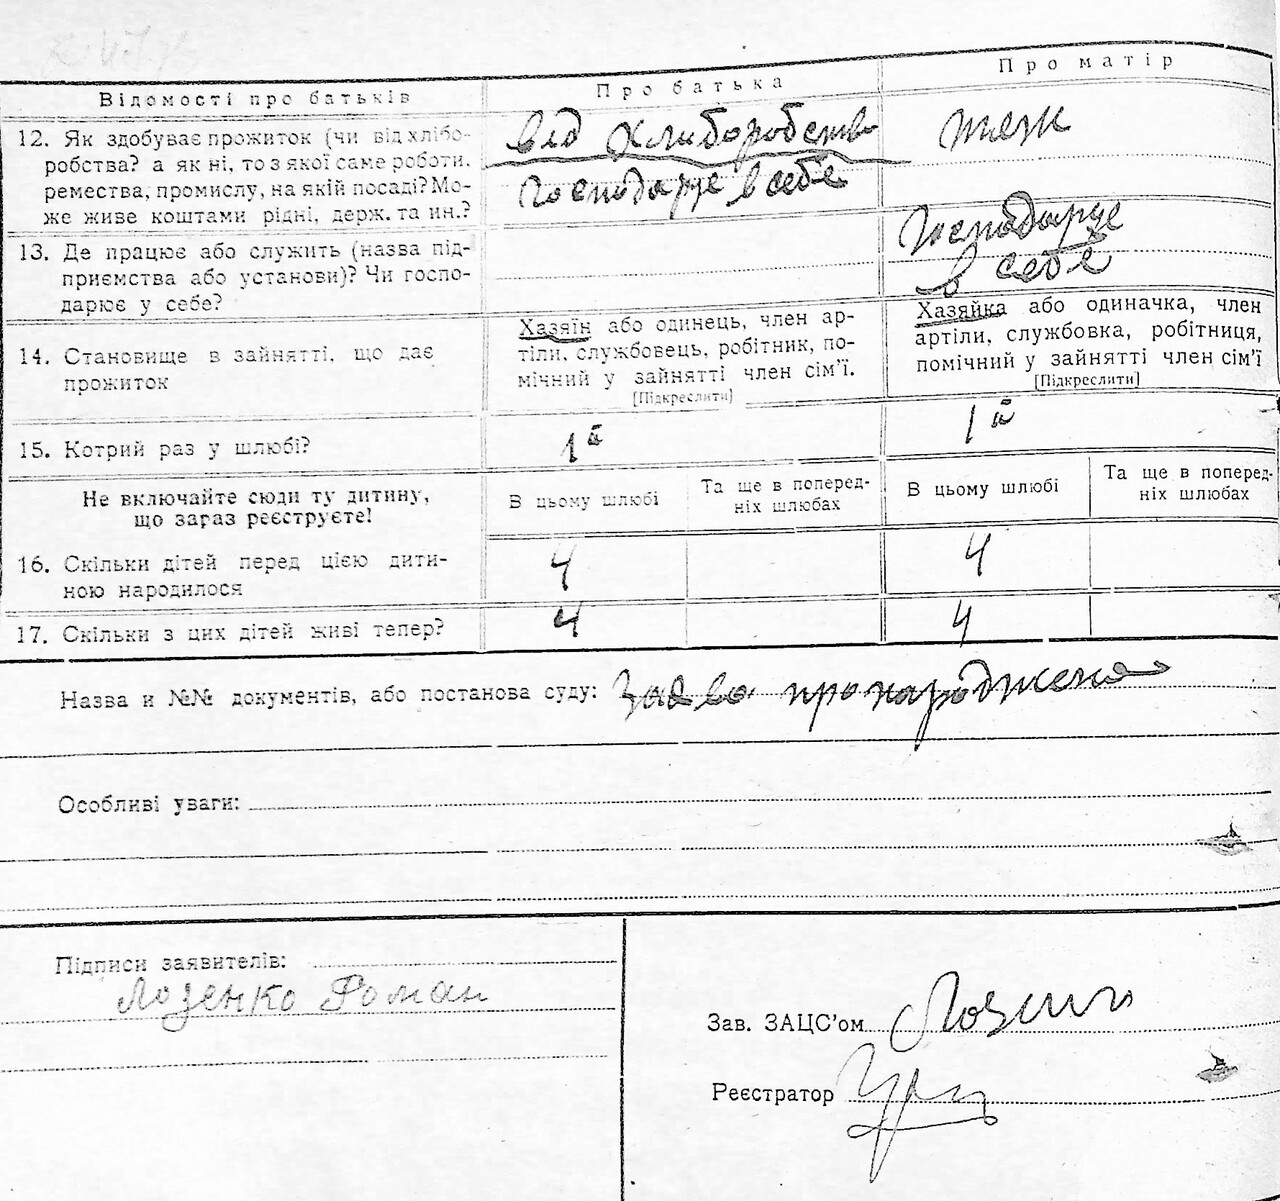 Відомості про батьків
Про батька
Про матір
12. Як здобуває прожиток (чи від хлібо-
робства? а як ні, то з якої саме роботи,
ремества, промислу, на якій посаді? Мо-
же живе коштами рідні, держ. та ин.?
від хлиборобства
Господарує в себе
теж
13. Де працює або служить (назва під-
приємства або установи)? Чи госпо-
дарює у себе?
Господарує
в себе
14. Становище в зайнятті, що дає
прожиток
Хазяїн або одинець, член ар-
тіли, службовець, робітник, по-
мічний у зайнятті член сім'ї.
[Підкреслити]
Хазяйка або одиначка, член
артіли, службовка, робітниця,
помічний у зайнятті член сім'ї
[Підкреслити]
15. Котрий раз у шлюбі?
1й
1й
Не включайте сюди ту дитину,
що зараз реєструєте!
В цьому шлюбі
Та ще в поперед-
ніх шлюбах
В цьому шлюбі
Та ще в поперед-
ніх шлюбах
16. Скільки дітей перед цією дити-
ною народилося
4
4
17. Скільки з цих дітей живі тепер?
4
4
Назва и №№ документів, або постанова суду: Заява про народження
Особливі уваги:
Підписи заявителів:
Лозенко Роман
Зав. ЗАЦС'ом
Реєстратор